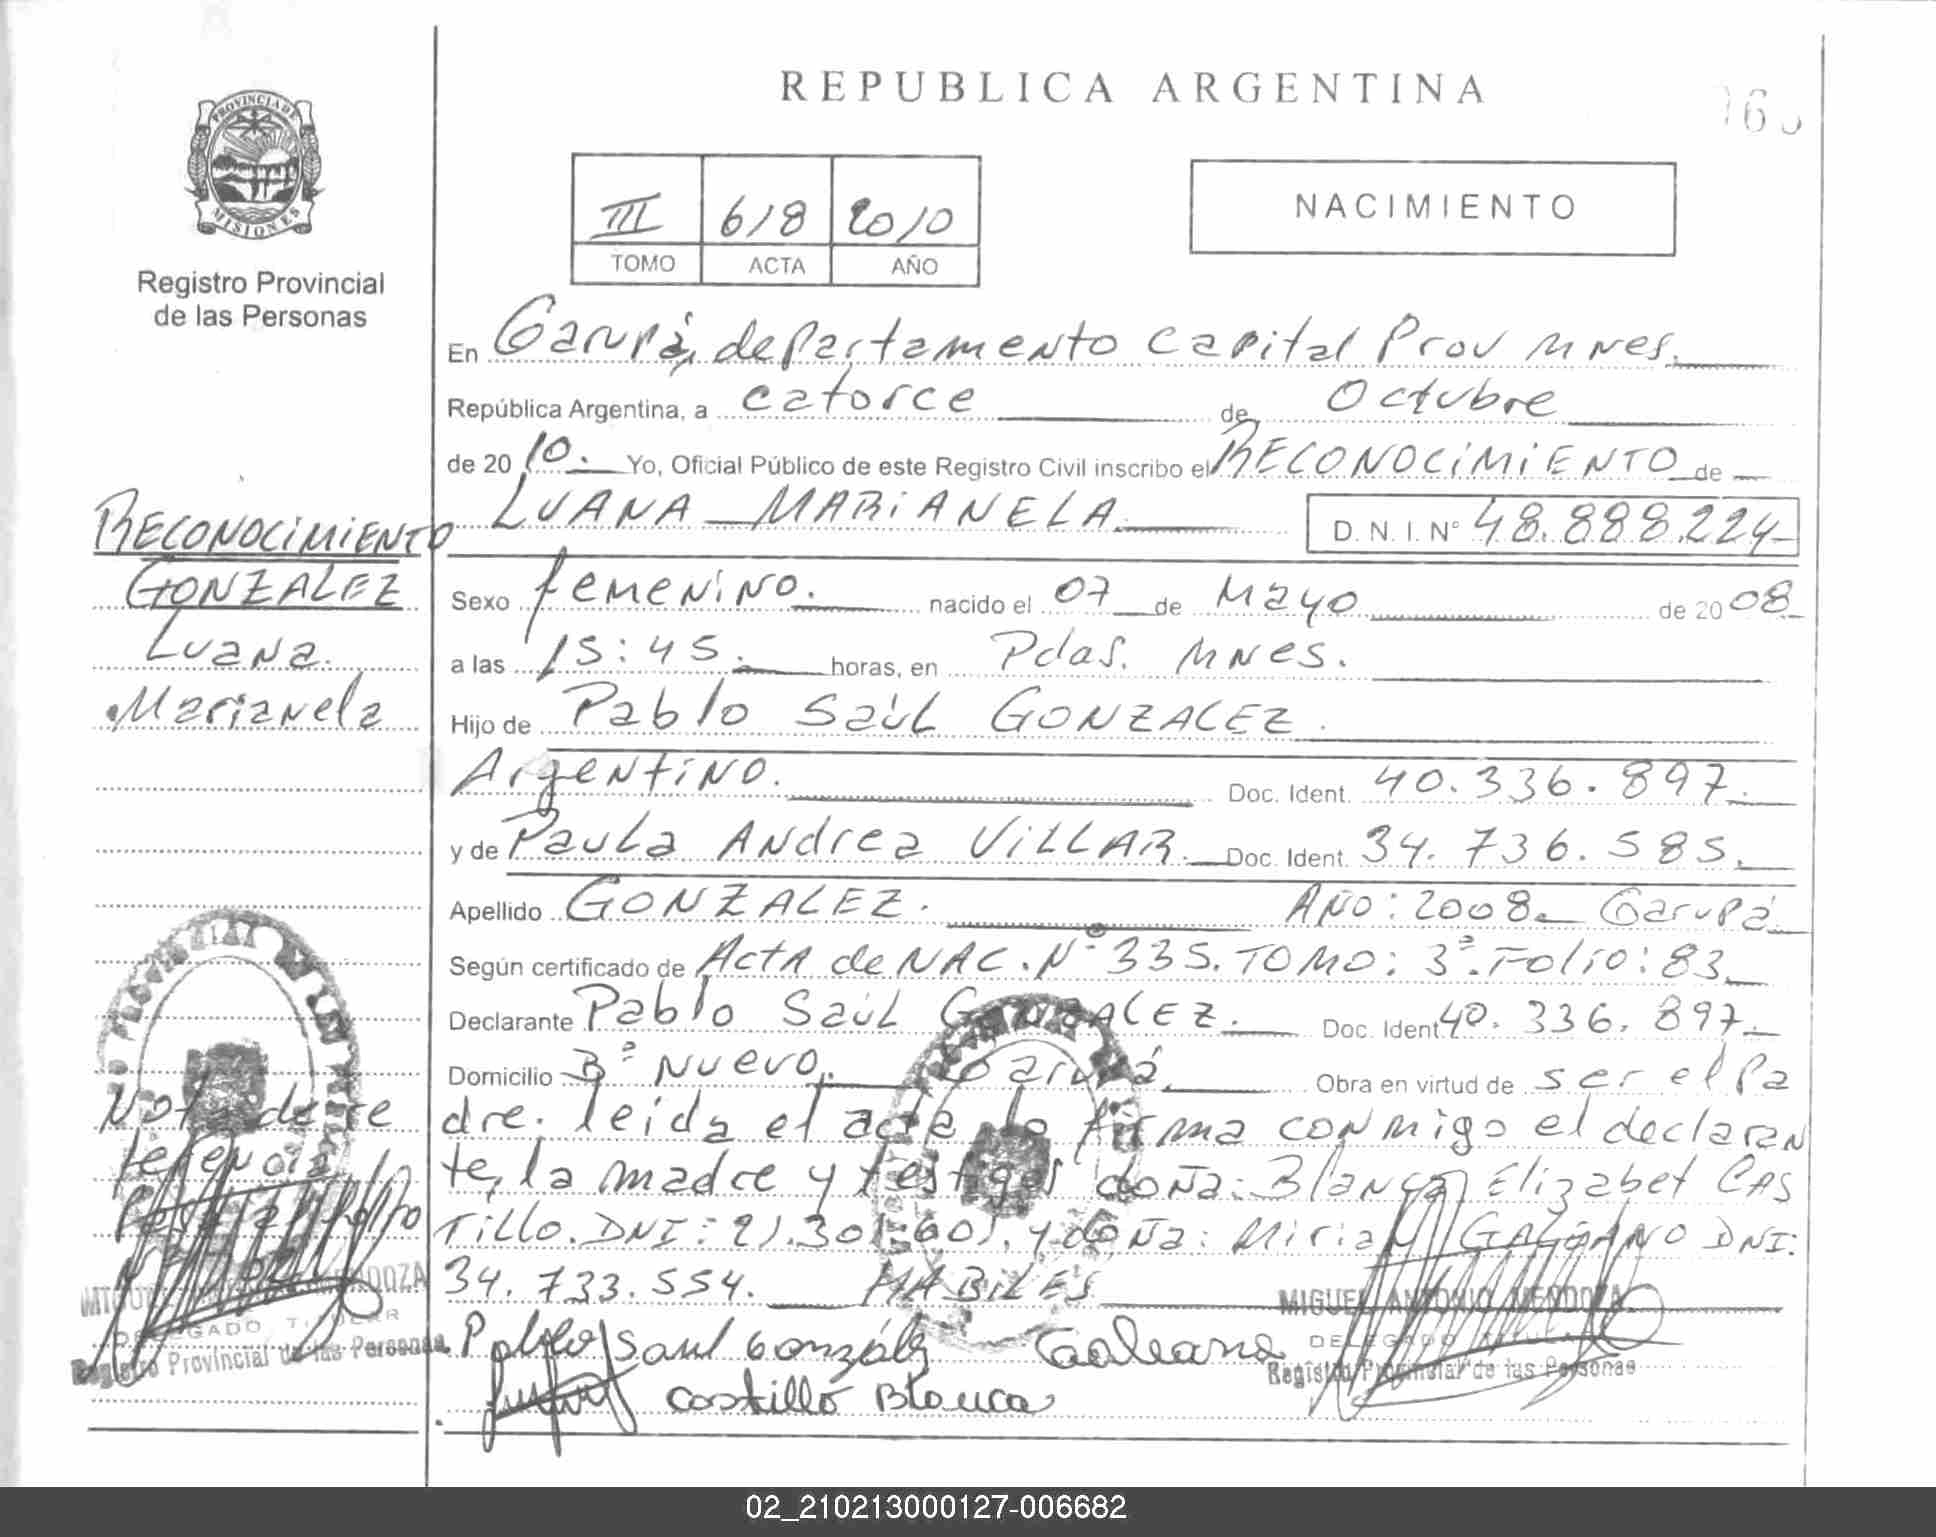 REPUBLICA ARGENTINA
PROVINCIA DE
MISIONES
Registro Provincial
de las Personas
III 618 2010
TOMO ACTA AÑO
NACIMIENTO
En Garupá, departamento Capital Prov Mnes.
República Argentina, a catorce de Octubre
de 2010. Yo, Oficial Público de este Registro Civil inscribo el RECONOCIMIENTO de
LUANA MARIANELA D. N. I. N° 48.888.224
Sexo femenino. nacido el 07 de Mayo de 2008
a las 15:45. horas, en Pdas. Mnes.
Hijo de Pablo Saúl GONZALEZ.
Argentino. Doc. Ident. 40.336.897.
y de Paula Andrea VILLAR. Doc. Ident. 34.736.585.
Apellido GONZALEZ. Año: 2008. Garupá
Según certificado de Acta de NAC. N° 335. TOMO: 3°. Folio: 83
Declarante Pablo Saúl GONZALEZ. Doc. Ident 40.336.897.
Domicilio B° Nuevo, Garupá. Obra en virtud de ser el pa
dre. leida el acta la firma conmigo el declaran
te, la madre y testigos doña: Blanca Elizabet CAS
TILLO. DNI: 21.301.601. y doña: Mirian GALEANO DNI:
34.733.554. HABILES
Pablo Saul González Galeana
Castillo Blanca
MIGUEL ANTONIO MENDOZA
DELEGADO TITULAR
Registro Provincial de las Personas
RECONOCIMIENTO
GONZALEZ
Luana
Marianela
Nota de re
ferencia
MENDOZA
DELEGADO TITULAR
Registro Provincial de las Personas
02_210213000127-006682